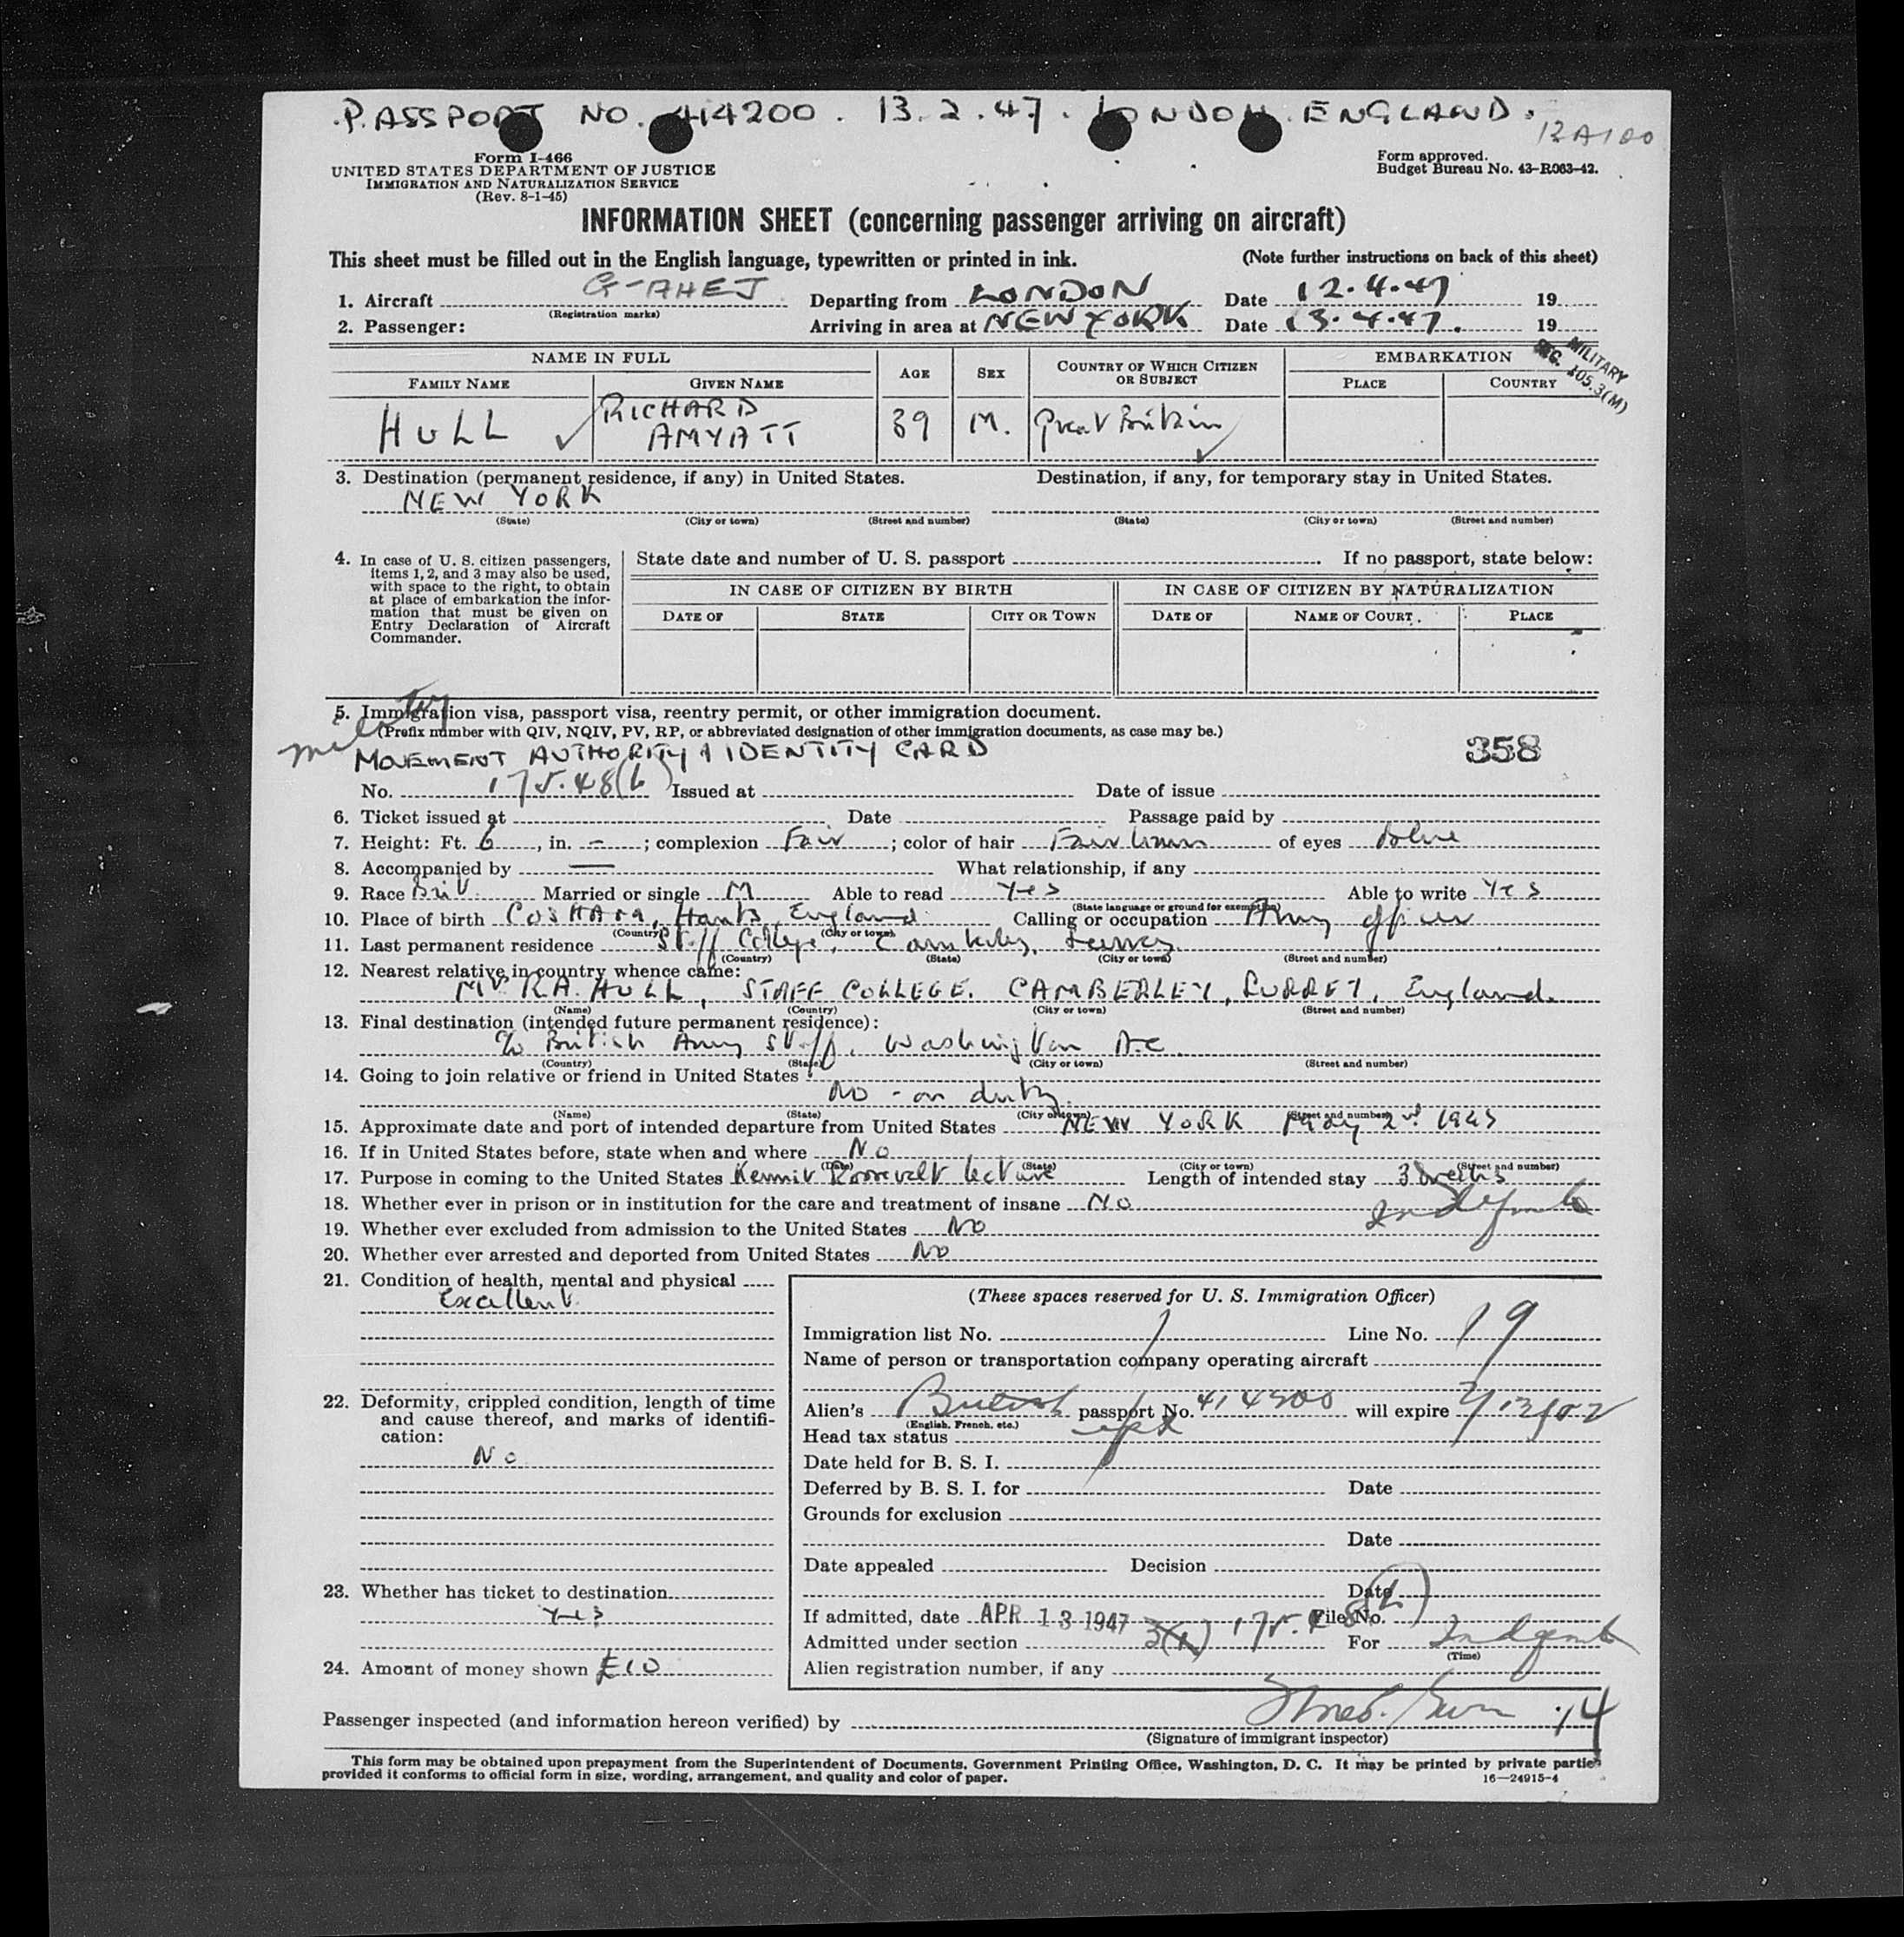 PASSPORT NO. 414200. 13.2.47. LONDON. ENGLAND.
Form I-466
UNITED STATES DEPARTMENT OF JUSTICE
IMMIGRATION AND NATURALIZATION SERVICE
(Rev. 8-1-45)
Form approved.
Budget Bureau No. 43-R063-42.
INFORMATION SHEET (concerning passenger arriving on aircraft)
This sheet must be filled out in the English language, typewritten or printed in ink. (Note further instructions on back of this sheet)
1. Aircraft G-AHEJ Departing from LONDON Date 12.4.47 19
(Registration marks)
2. Passenger: Arriving in area at NEW YORK Date 13.4.47. 19
MILITARY
SEC. 105.3(M)
NAME IN FULL AGE SEX COUNTRY OF WHICH CITIZEN OR SUBJECT EMBARKATION
FAMILY NAME GIVEN NAME PLACE COUNTRY
HULL RICHARD AMYATT 39 M. Great Britain
3. Destination (permanent residence, if any) in United States. Destination, if any, for temporary stay in United States.
NEW YORK
(State) (City or town) (Street and number) (State) (City or town) (Street and number)
4. In case of U. S. citizen passengers,
items 1, 2, and 3 may also be used,
with space to the right, to obtain
at place of embarkation the infor-
mation that must be given on
Entry Declaration of Aircraft
Commander.
State date and number of U. S. passport If no passport, state below:
IN CASE OF CITIZEN BY BIRTH IN CASE OF CITIZEN BY NATURALIZATION
DATE OF STATE CITY OR TOWN DATE OF NAME OF COURT PLACE
5. Immigration visa, passport visa, reentry permit, or other immigration document.
(Prefix number with QIV, NQIV, PV, RP, or abbreviated designation of other immigration documents, as case may be.)
MOVEMENT AUTHORITY & IDENTITY CARD
358
No. 175.48(b) Issued at Date of issue
6. Ticket issued at Date Passage paid by
7. Height: Ft. 6, in. –; complexion Fair; color of hair Fair brown of eyes Blue
8. Accompanied by — What relationship, if any
9. Race Brit. Married or single M Able to read Yes Able to write Yes
(State language or ground for exemption)
10. Place of birth COSHAM, Hants, England Calling or occupation Army officer
(Country) (City or town)
11. Last permanent residence Staff College, Camberley, Surrey.
(Country) (State) (City or town) (Street and number)
12. Nearest relative in country whence came:
R.A. HULL, STAFF COLLEGE. CAMBERLEY, SURREY, England.
(Name) (Country) (City or town) (Street and number)
13. Final destination (intended future permanent residence):
c/o British Army Staff, Washington D.C.
(Country) (State) (City or town) (Street and number)
14. Going to join relative or friend in United States
No - on duty.
(Name) (State) (City or town) (Street and number)
15. Approximate date and port of intended departure from United States NEW YORK May 2nd
16. If in United States before, state when and where No
(Date) (State) (City or town) (Street and number)
17. Purpose in coming to the United States Kermit Roosevelt lecture Length of intended stay 3 weeks
18. Whether ever in prison or in institution for the care and treatment of insane No
19. Whether ever excluded from admission to the United States No
20. Whether ever arrested and deported from United States No
21. Condition of health, mental and physical
Excellent.
22. Deformity, crippled condition, length of time
and cause thereof, and marks of identifi-
cation:
No
23. Whether has ticket to destination
Yes
24. Amount of money shown £10
(These spaces reserved for U. S. Immigration Officer)
Immigration list No. 1 Line No. 19
Name of person or transportation company operating aircraft
Alien's British passport No. 414200 will expire
(English, French, etc.)
Head tax status
Date held for B. S. I.
Deferred by B. S. I. for Date
Grounds for exclusion
Date
Date appealed Decision
Date
If admitted, date APR 13 1947 File No.
Admitted under section 3(1) 175.48(b) For
(Time)
Alien registration number, if any
Passenger inspected (and information hereon verified) by 14
(Signature of immigrant inspector)
This form may be obtained upon prepayment from the Superintendent of Documents, Government Printing Office, Washington, D. C. It may be printed by private parties
provided it conforms to official form in size, wording, arrangement, and quality and color of paper.
16—24915-4